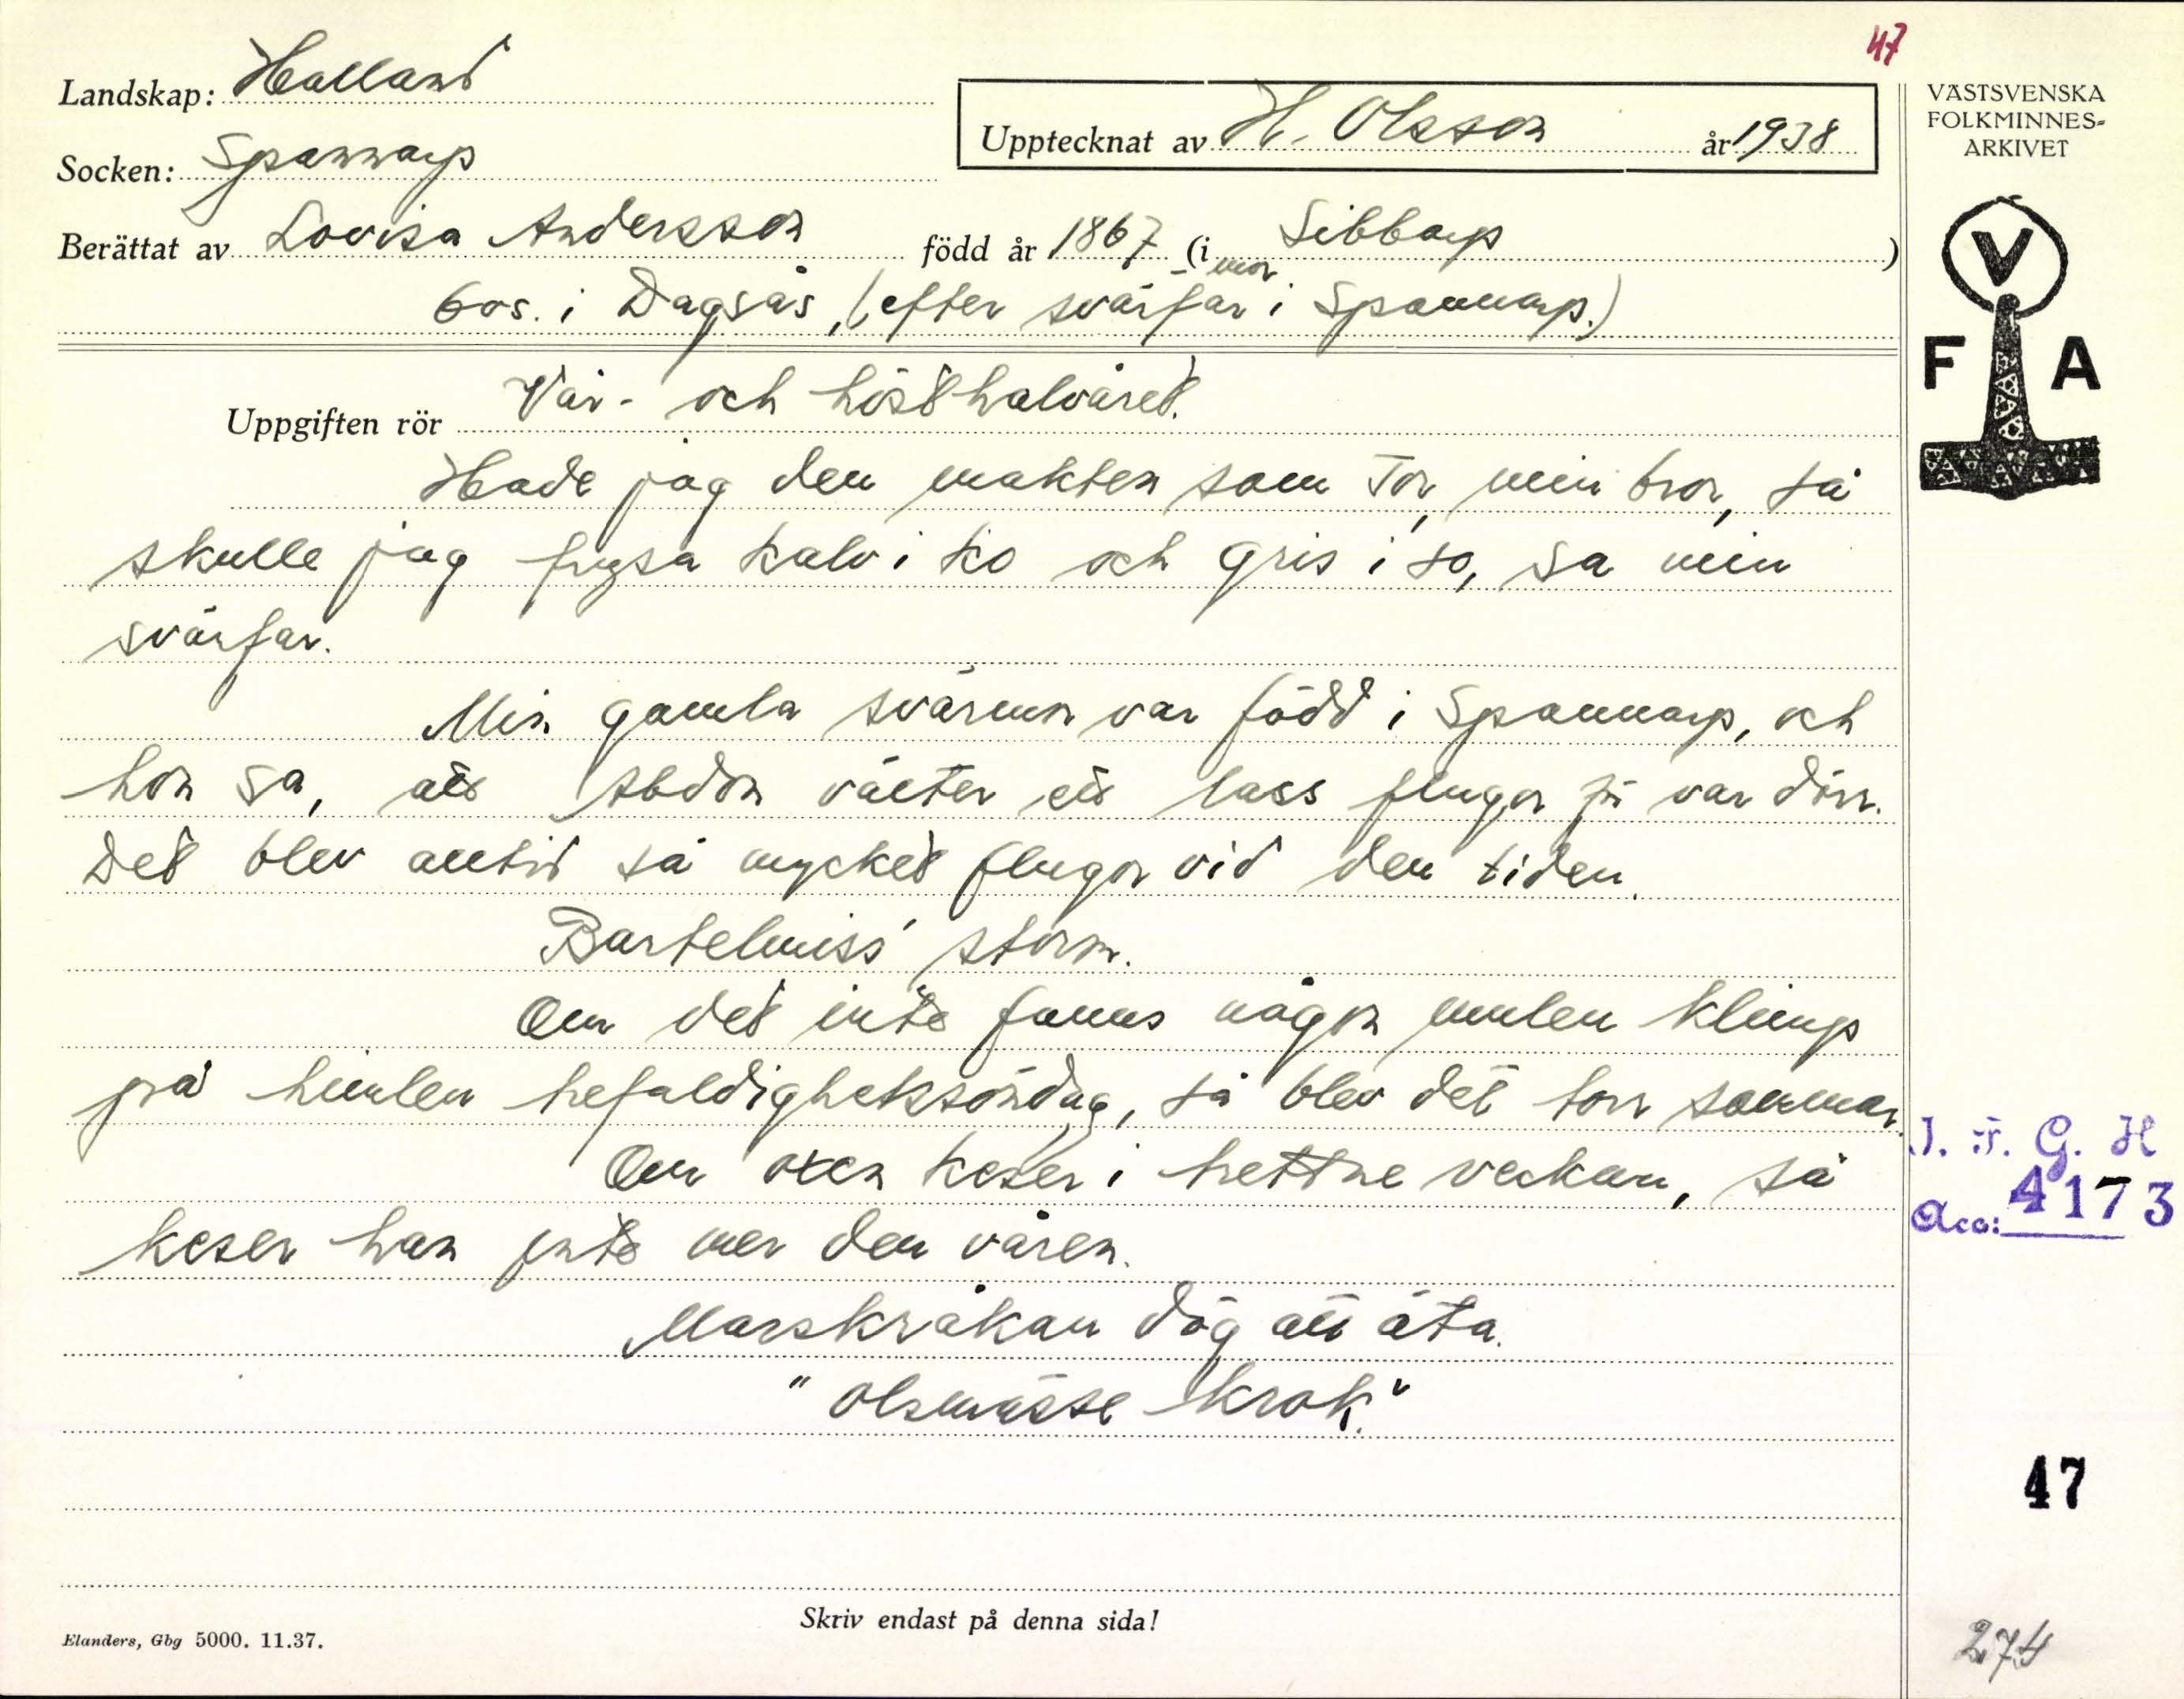 47
Landskap: Halland
Upptecknat av H. Olsson år 1938
VÄSTSVENSKA
FOLKMINNES-
ARKIVET
Socken: Spannarp
Berättat av Lovisa Andersson född år 1867 (i Sibbarp)
mor
bos. i Dagsås, (efter svärfar i Spannarp.)
V
F A
Uppgiften rör Vår- och hösthalvåret.
Hade jag den makten som Tor, min bror, så
skulle jag frysa kalv i ko och gris i so, sa min
svärfar.
Min gamla svärmor var född i Spannarp, och
hon sa, att Abdon välter ett lass flugor på var dörr.
Det blev alltid så mycket flugor vid den tiden.
Bartelmiss' storm.
Om det inte fanns någon mulen klimp
på himlen trefaldighetssöndag, så blev det torr sommar.
Om oxen keser i trettne veckan, så
keser han inte mer den våren.
Marskråkan dög att äta.
"Olsmässe krok."
I. F. G. H
Acc: 4173
47
Skriv endast på denna sida!
Elanders, Gbg 5000. 11.37.
274